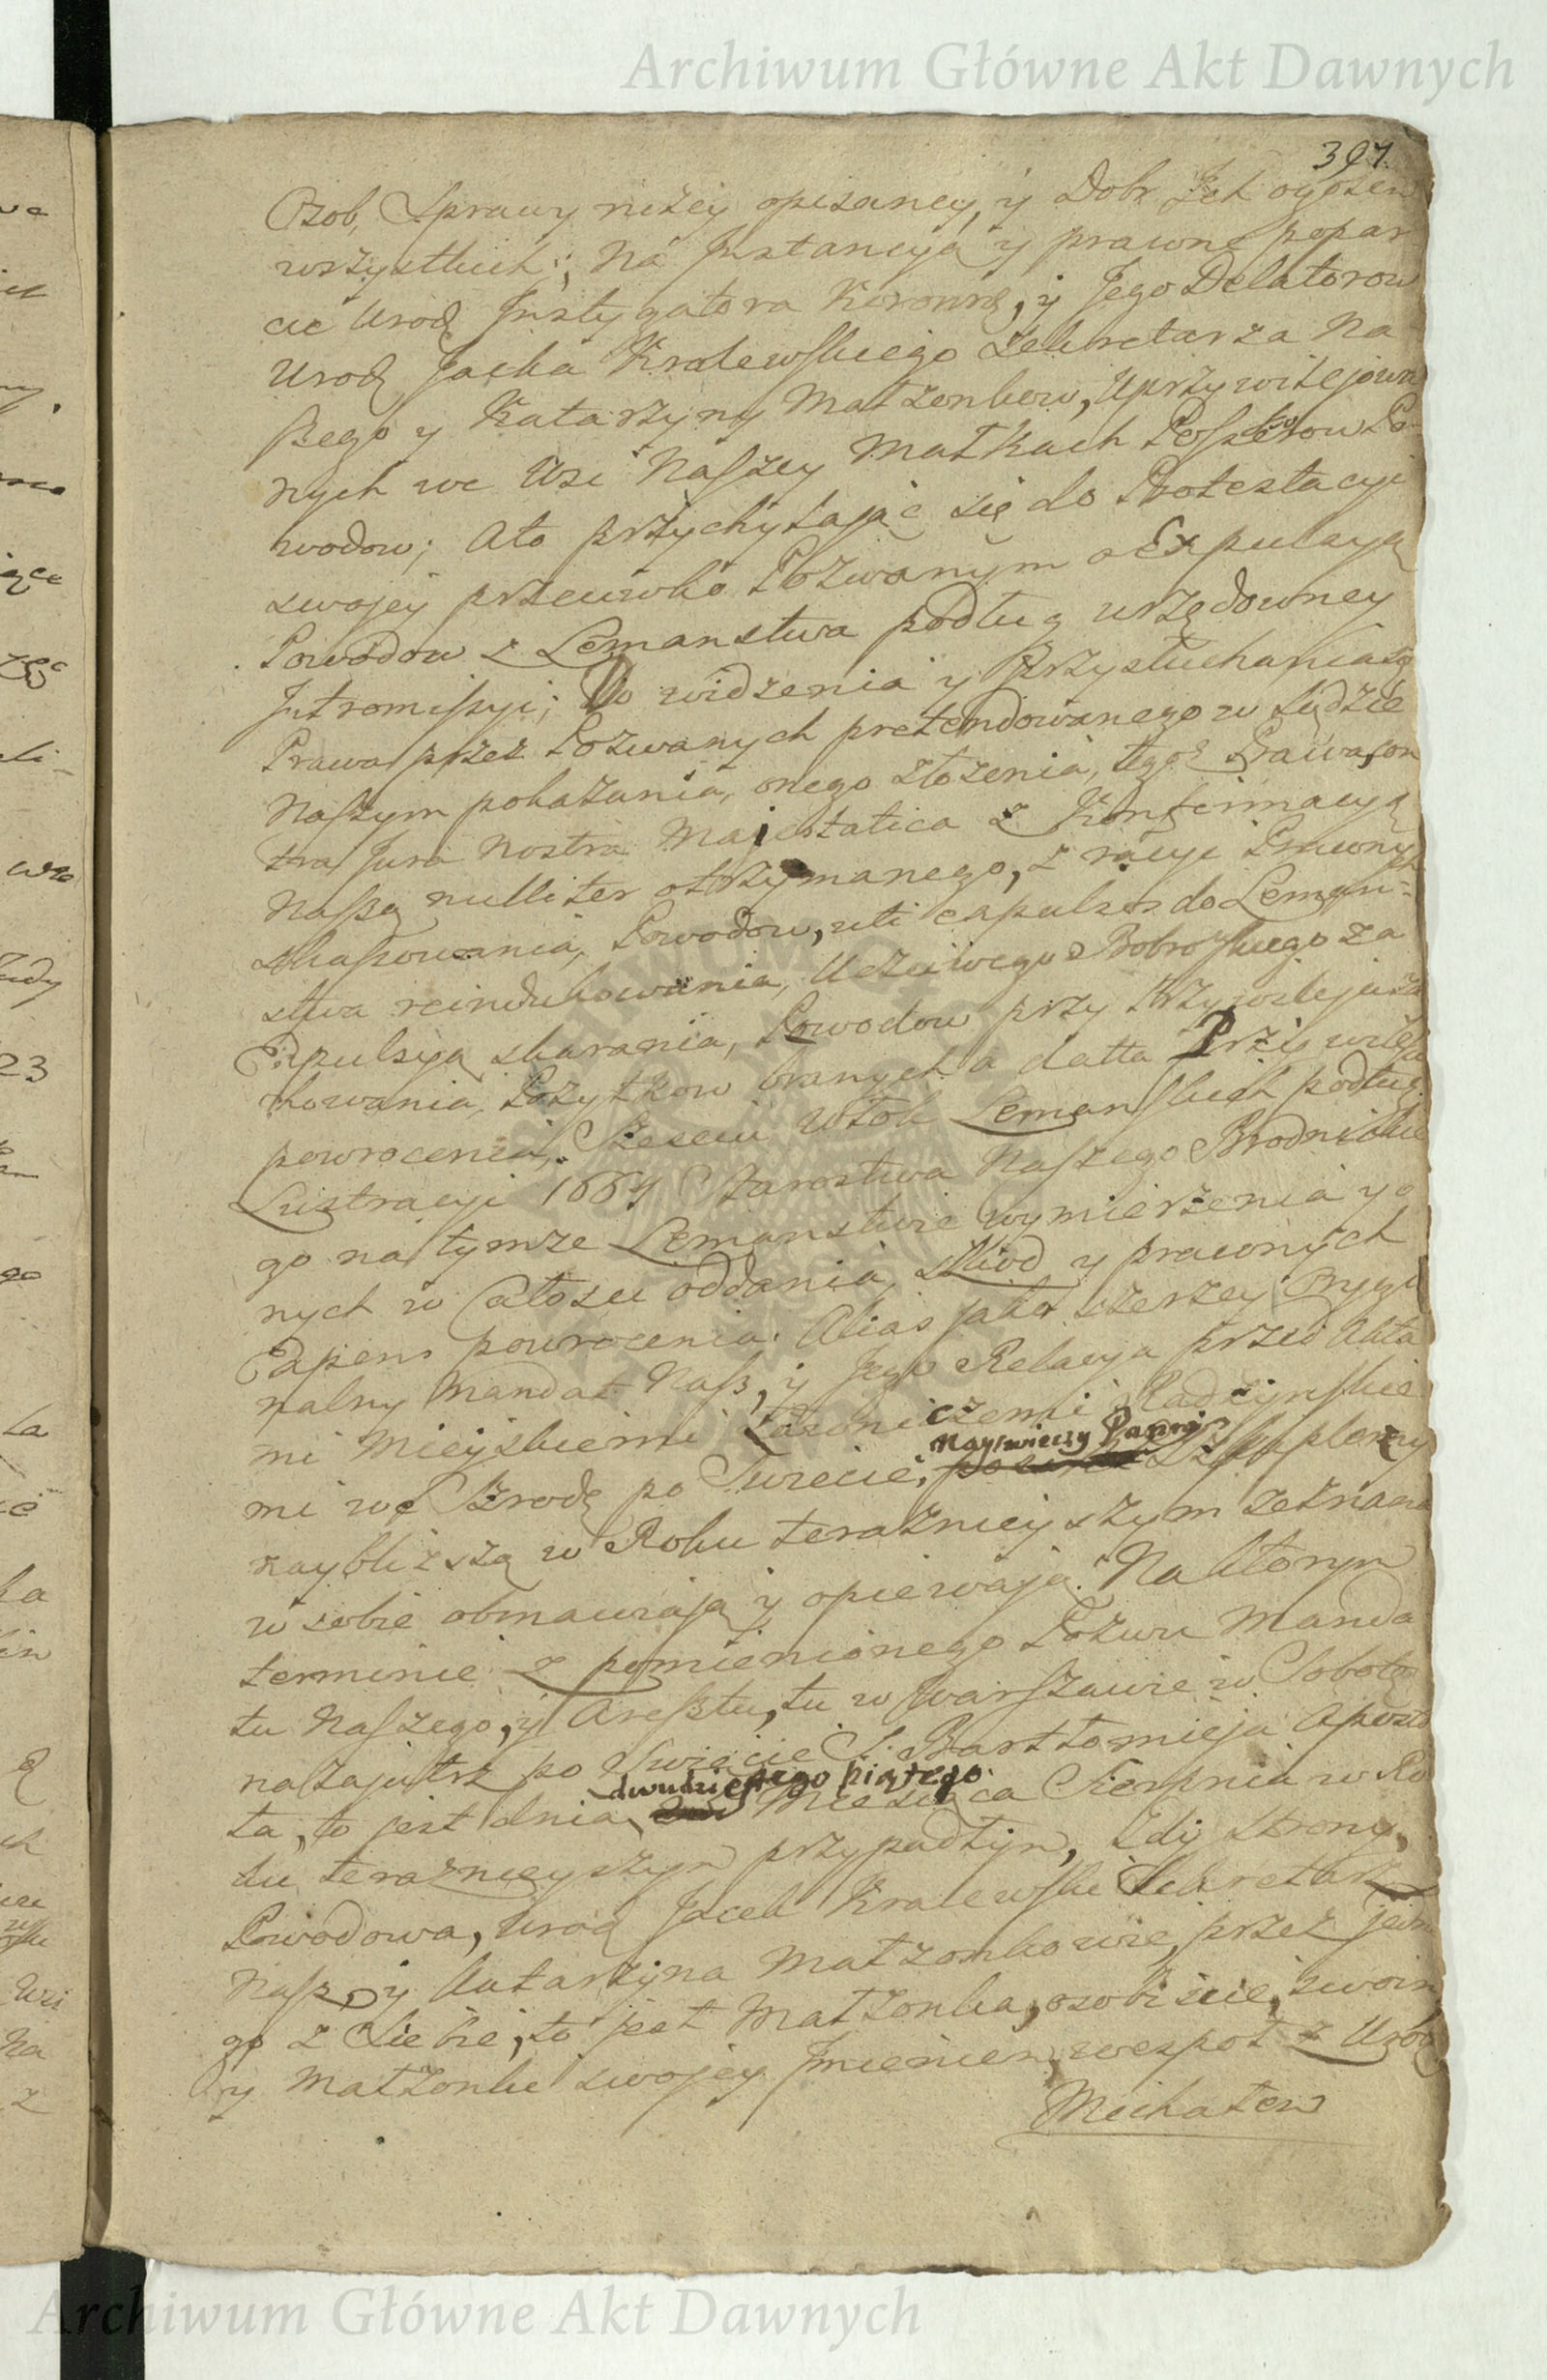 Archiwum Główne Akt Dawnych
397.
Osob, Sprawy niżey opisaney, y Dobr Ich ogołem
wszystkich; Na Jnstancyą y prawne popar
cie Urodź Jnstygatora Koronnę, y Jego Delatorow
Urodź Jacka Kralewskiego Sekretarza Na
szego y Katarzyny Małżonkow, Uprzywilejowa
nych we Wsi Naszey Małkach Possessorow Po
wodow; Ato przychylając się do Protestacyi
swojey przeciwko Pozwanym o Expulsyą
Powodow z Lemanstwa podług urzędowney
Jntromissyi; Do widzenia y Przysłuchania się
Prawa przez Pozwanych pretendowanego w Sądzie
Naszym pokazania, onego złożenia, tegoż Prawa con
tra Jura Nostra Majestatica z Konfirmacyą
Naszą nulliter otrzymanego, z racyi Prawnych
skassowania, Powodow, uti expulsos do Leman-
stwa reindukowania, Uczciwego Bobrowskiego za
Expulsyą skarania, Powodow przy Przywileju za
chowania, Pożytkow branych a datta Przywileju
powrocenia, Szesciu Włok Lemanskich podług
Lustracyi 1664 Starostwa Naszego Brodnickie
go na tymże Lemanstwie wymierzenia y o
nych w Całosci oddania, szkod y prawnych
Expens powrocenia. Alias jako szerzey Orygi
nalny Mandat Nasz, y Jego Relacya przed Akta
mi Mieyskiemi Zakroniczemi Radzynskie
mi we Szrodę po Swięcie Nayświęczy Panny Szkaplerzny
nayblizszą w Roku teraznieyszym zeznana
w sobie obmawiają y opiewają. Na ktorym
terminie z pomienionego Pozwu Manda
tu Naszego, y Aresztu, tu w Warszawie w Sobotę
nazajutrz po Swięcie S. Bartłomieja Aposto
ła, to jest dnia dwudziestego piątego Miesiąca Sierpnia w Ro
ku teraznieyszym przypadłym, Gdy Strony,
Powodowa, Urodź Jacek Kralewski Sekretarz
Nasz, y Katarzyna Małżonkowie, przez jedne
go z Siebie, to jest Małżonka, osobiscie, swoim
y Małżonki swojey Jmieniem wespoł z Urodź
Michałem
Archiwum Główne Akt Dawnych